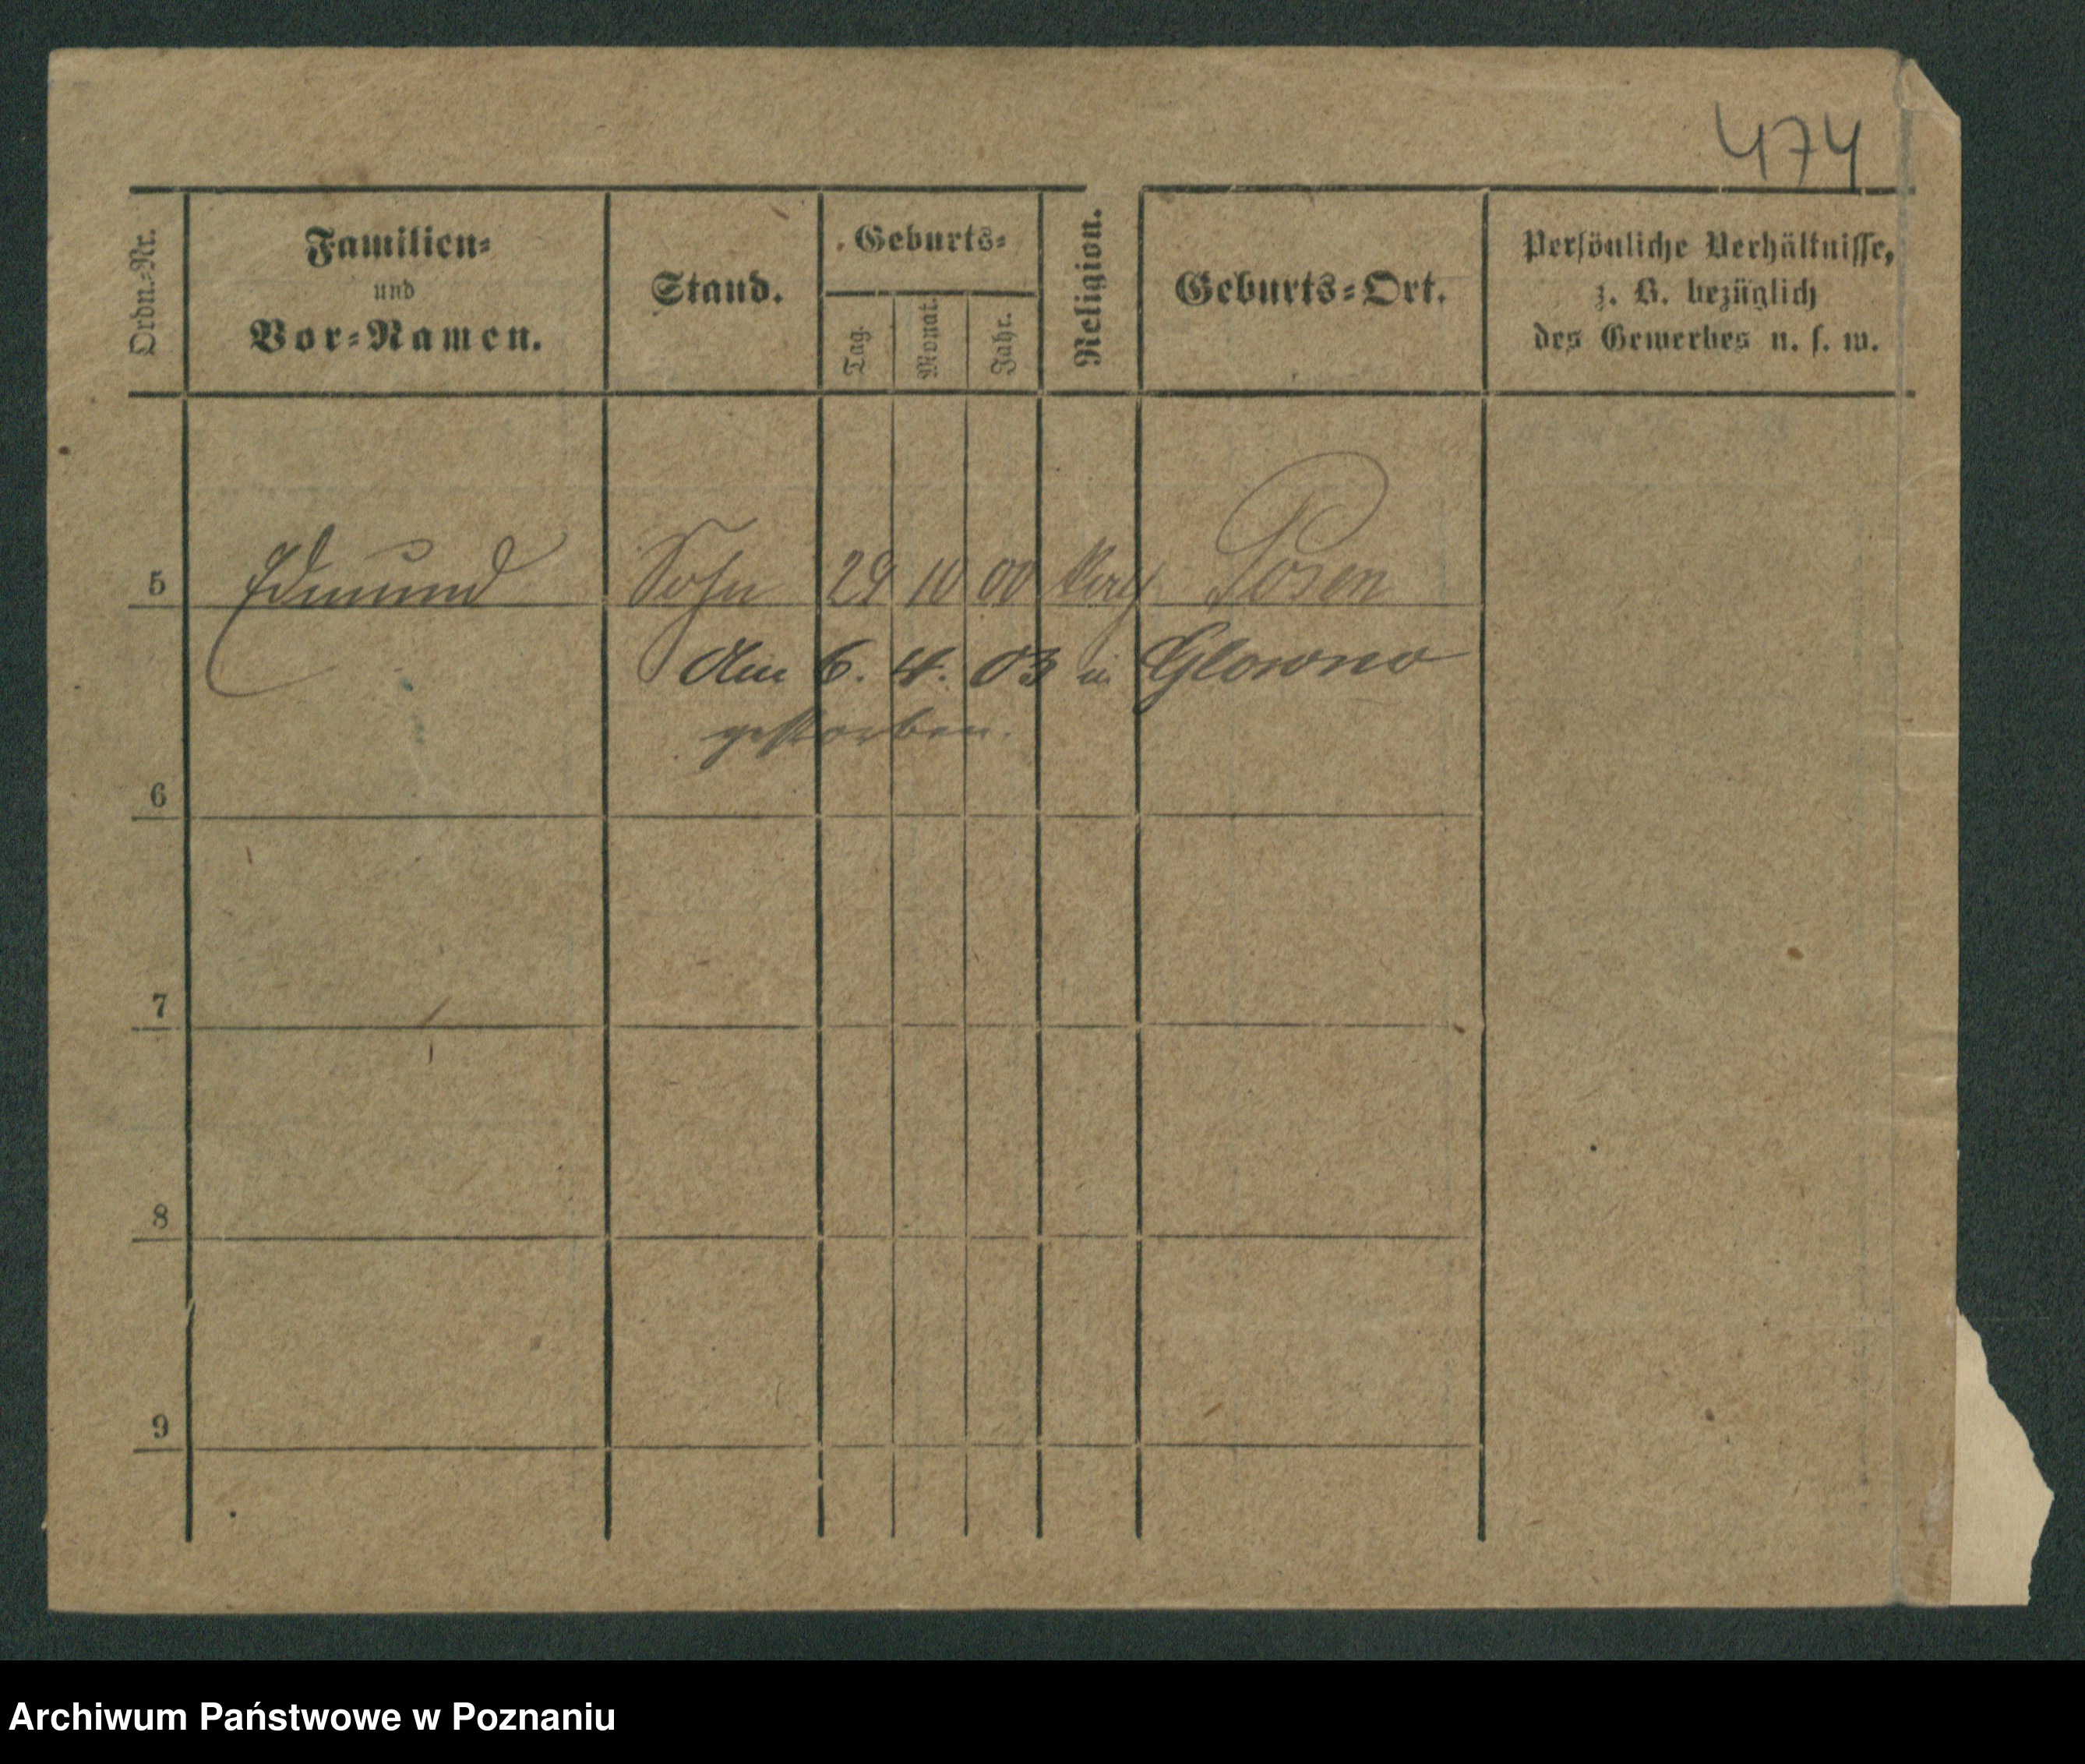 474
Ordn.-Nr.
Familien-
und
Vor-Namen.
Stand.
Geburts-
Tag.
Monat.
Jahr.
Religion.
Geburts-Ort.
Persönliche Verhältnisse,
z. B. bezüglich
des Gewerbes u. s. w.
5 Edmund Sohn 29 10 00 Posen
Am 6. 4. 03 in Glowno
gestorben.
6
7
8
9
Archiwum Państwowe w Poznaniu